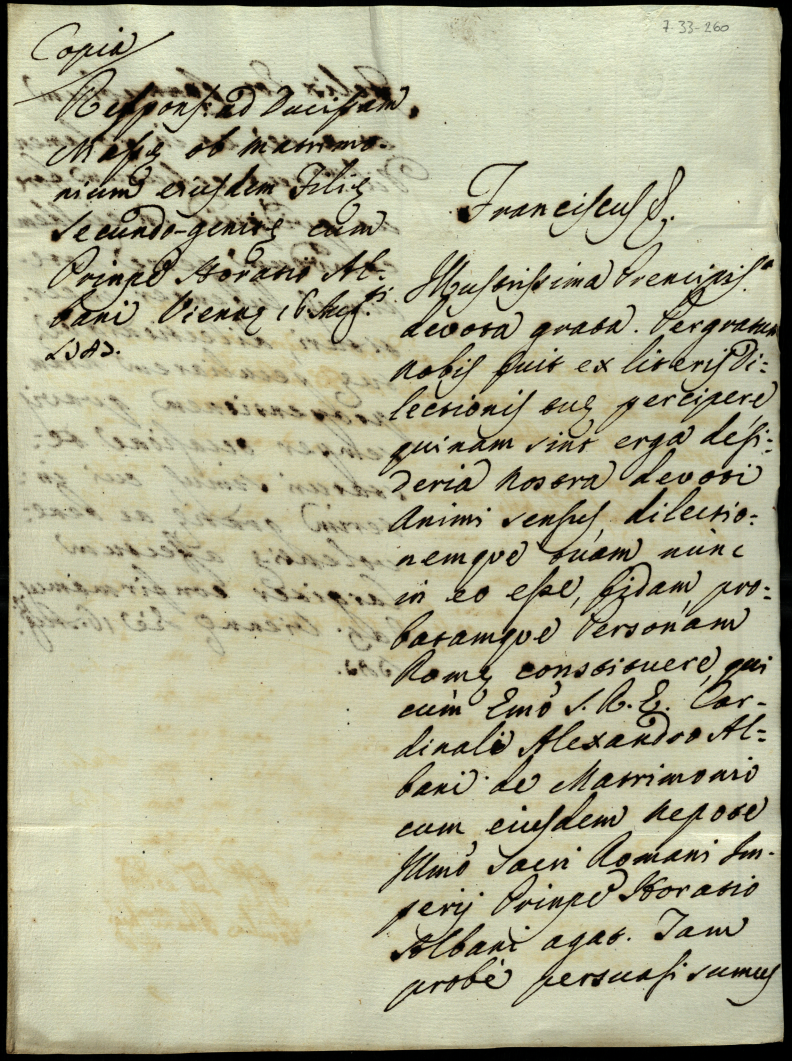 7-33-260
Copia
Respons: ad Ducissam
Massę ob matrimo-
nium ejusdem Filię
secundo-genitę cum
Prinpe Horatio Al-
bani Viennę 16 Aug:ti
Franciscus &.
Illustrissima Principiss:a
devota grata. Pergratum
nobis fuit ex literis Di:
lectionis tuę percipere
quinam sint erga desi:
deria nostra devoti
Animi sensus dilectio:
nemque tuam nunc
in eo esse, fidam, pro:
batamque Personam
Romę constituere, qui
cum Emo S. R. E. Car-
dinali Alexandro Al=
bani de Matrimonio
cum eiusdem Nepote
Illmo Sacri Romani Im-
perij Prinpe Horatio
Albani agat. Jam
probè persuasi sumus